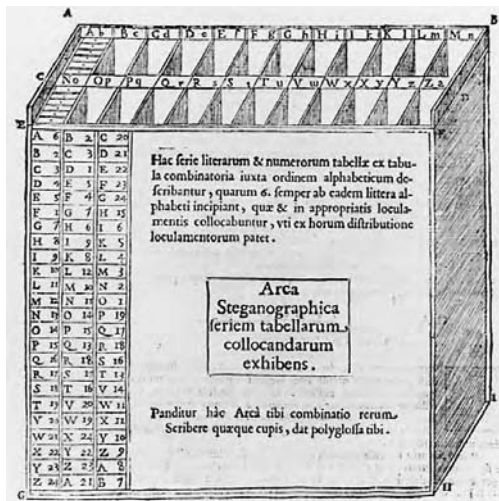 A
B
A b B c C d D e E f F g G h H i I k K l L m M n
C N o O p P q Q r R s S t T u V w W x X y Y z Z a D
E F
A 6 B 2 C 20
B 2 C 3 D 21
C 3 D 1 E 22
D 4 E 5 F 23
E 5 F 4 G 24
F 1 G 7 H 15
G 7 H 6 I 6
H 8 I 9 K 5
I 9 K 8 L 4
K 10 L 12 M 3
L 11 M 10 N 2
M 12 N 11 O 1
N 13 O 14 P 19
O 14 P 15 Q 17
P 15 Q 13 R 18
Q 16 R 18 S 16
R 17 S 17 T 13
S 18 T 16 V 14
T 19 V 20 W 11
V W 19 X
W 21 X 24 Y 10
X 22 Y 22 Z 9
Y 23 Z 23 A 8
Z 24 A 21 B 7
G
Hac ſerie literarum & numerorum tabellæ ex tabu-
la combinatoria iuxta ordinem alphabeticum de-
ſcribantur, quarum 6. ſemper ab eadem littera al-
phabeti incipiant, quæ & in appropriatis locula-
mentis collocabuntur, vti ex horum diſtributione
loculamentorum patet.
Arca
Steganographica
ſeriem tabellarum
collocandarum
exhibens.
Panditur hâc Arcâ tibi combinatio rerum
Scribere quæque cupis, dat polygloſſa tibi.
I
H